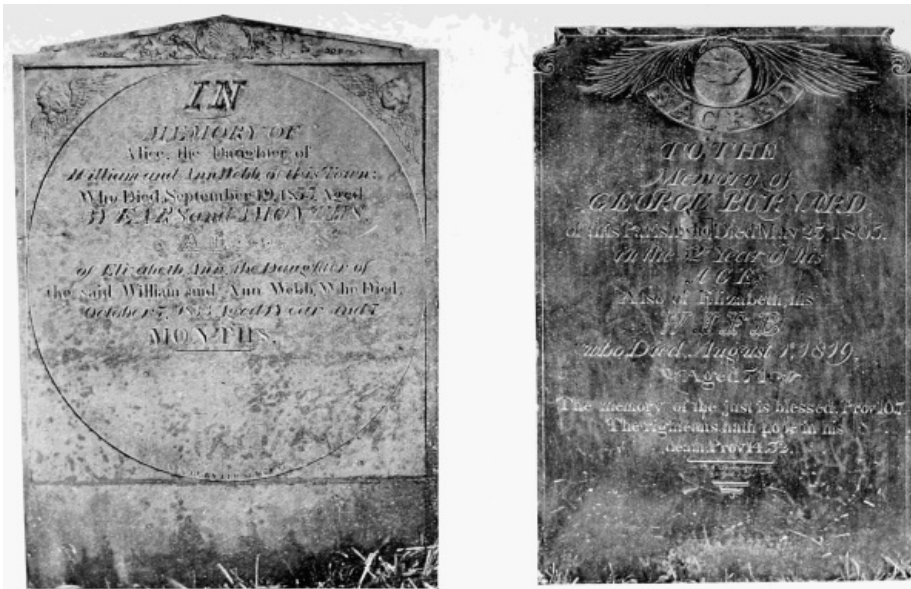 IN
MEMORY OF
Alice, the Daughter of
William and Ann Webb, of this Town:
Who Died September 19, Aged
YEARS and MONTHS.
Also
of Elizabeth Ann, the Daughter of
the said William and Ann Webb, Who Died,
October 7, Aged 1 Year and 7
MONTHS.
SACRED
TO THE
Memory of
GEORGE
of this Parish who Died May 23, 1805,
In the Year of his
AGE
Also of Elizabeth, his
WIFE
who Died, August 1, 1819,
Aged 71
The memory of the just is blessed. Prov 10.7.
The righteous hath hope in his
death. Prov 14.32.